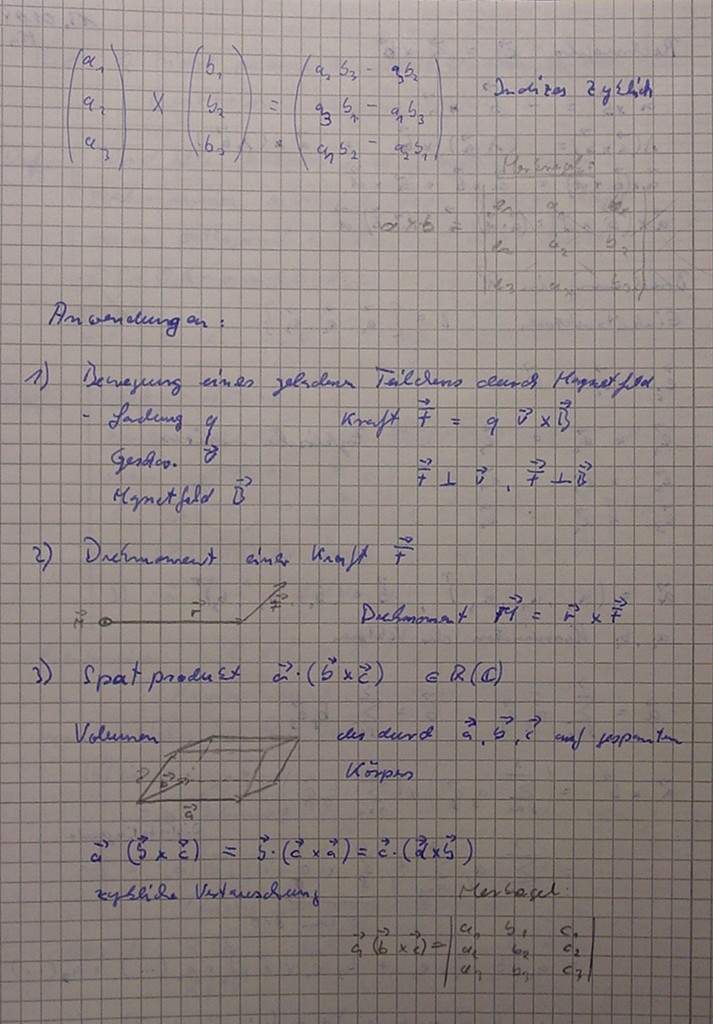 (a₁ a₂ a₃) × (b₁ b₂ b₃) = (a₂b₃ - a₃b₂, a₃b₁ - a₁b₃, a₁b₂ - a₂b₁) Indizes zyklisch
Merkregel:
a⃗ × b⃗ =
Anwendungen:
1) Bewegung eines geladenen Teilchens durch Magnetfeld
- Ladung q Kraft F⃗ = q v⃗ × B⃗
Geschw. v⃗
F⃗ ⊥ v⃗, F⃗ ⊥ B⃗
Magnetfeld B⃗
2) Drehmoment einer Kraft F⃗
M⃗ r⃗ F⃗ Drehmoment M⃗ = r⃗ × F⃗
3) Spatprodukt a⃗·(b⃗ × c⃗) ∈ R(C)
Volumen des durch a⃗, b⃗, c⃗ aufgespannten
Körpers
b⃗
a⃗
a⃗ (b⃗ × c⃗) = b⃗·(c⃗ × a⃗) = c⃗·(a⃗ × b⃗)
zyklische Vertauschung Merkregel:
a⃗ (b⃗ × c⃗) = | a₁ b₁ c₁
a₂ b₂ c₂
a₃ b₃ c₃ |